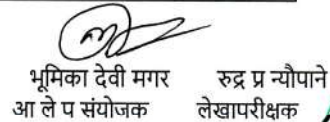 भूमिका देवी मगर रुद्र प्र न्यौपाने
आ ले प संयोजक लेखापरीक्षक